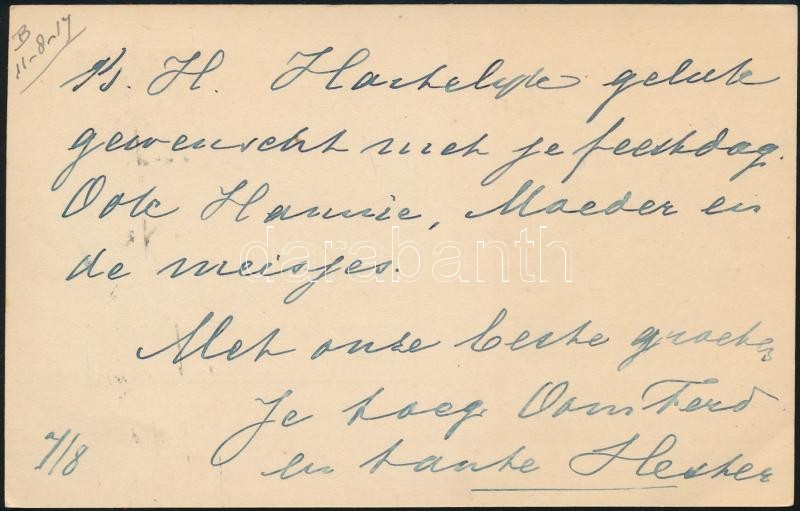 B
11-8-17
B. H. Hartelijk geluk
gewenscht met je feestdag.
Ook Hannie, Moeder en
de meisjes.
darabanth
Met onze beste groeten
Je toeg. Oom Ferd
7/8
en tante Hester